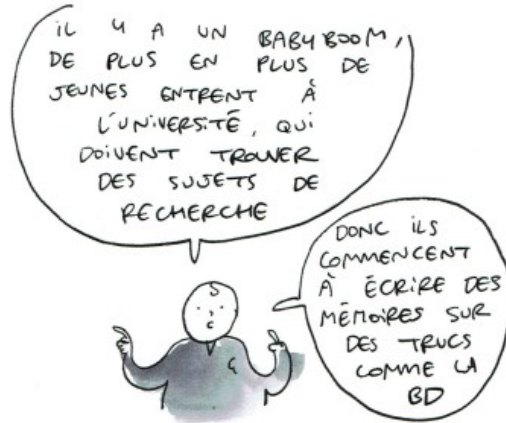 IL Y A UN BABYBOOM,
DE PLUS EN PLUS DE
JEUNES ENTRENT À
L'UNIVERSITÉ, QUI
DOIVENT TROUVER
DES SUJETS DE
RECHERCHE
DONC ILS
COMMENCENT
À ÉCRIRE DES
MÉMOIRES SUR
DES TRUCS
COMME LA
BD